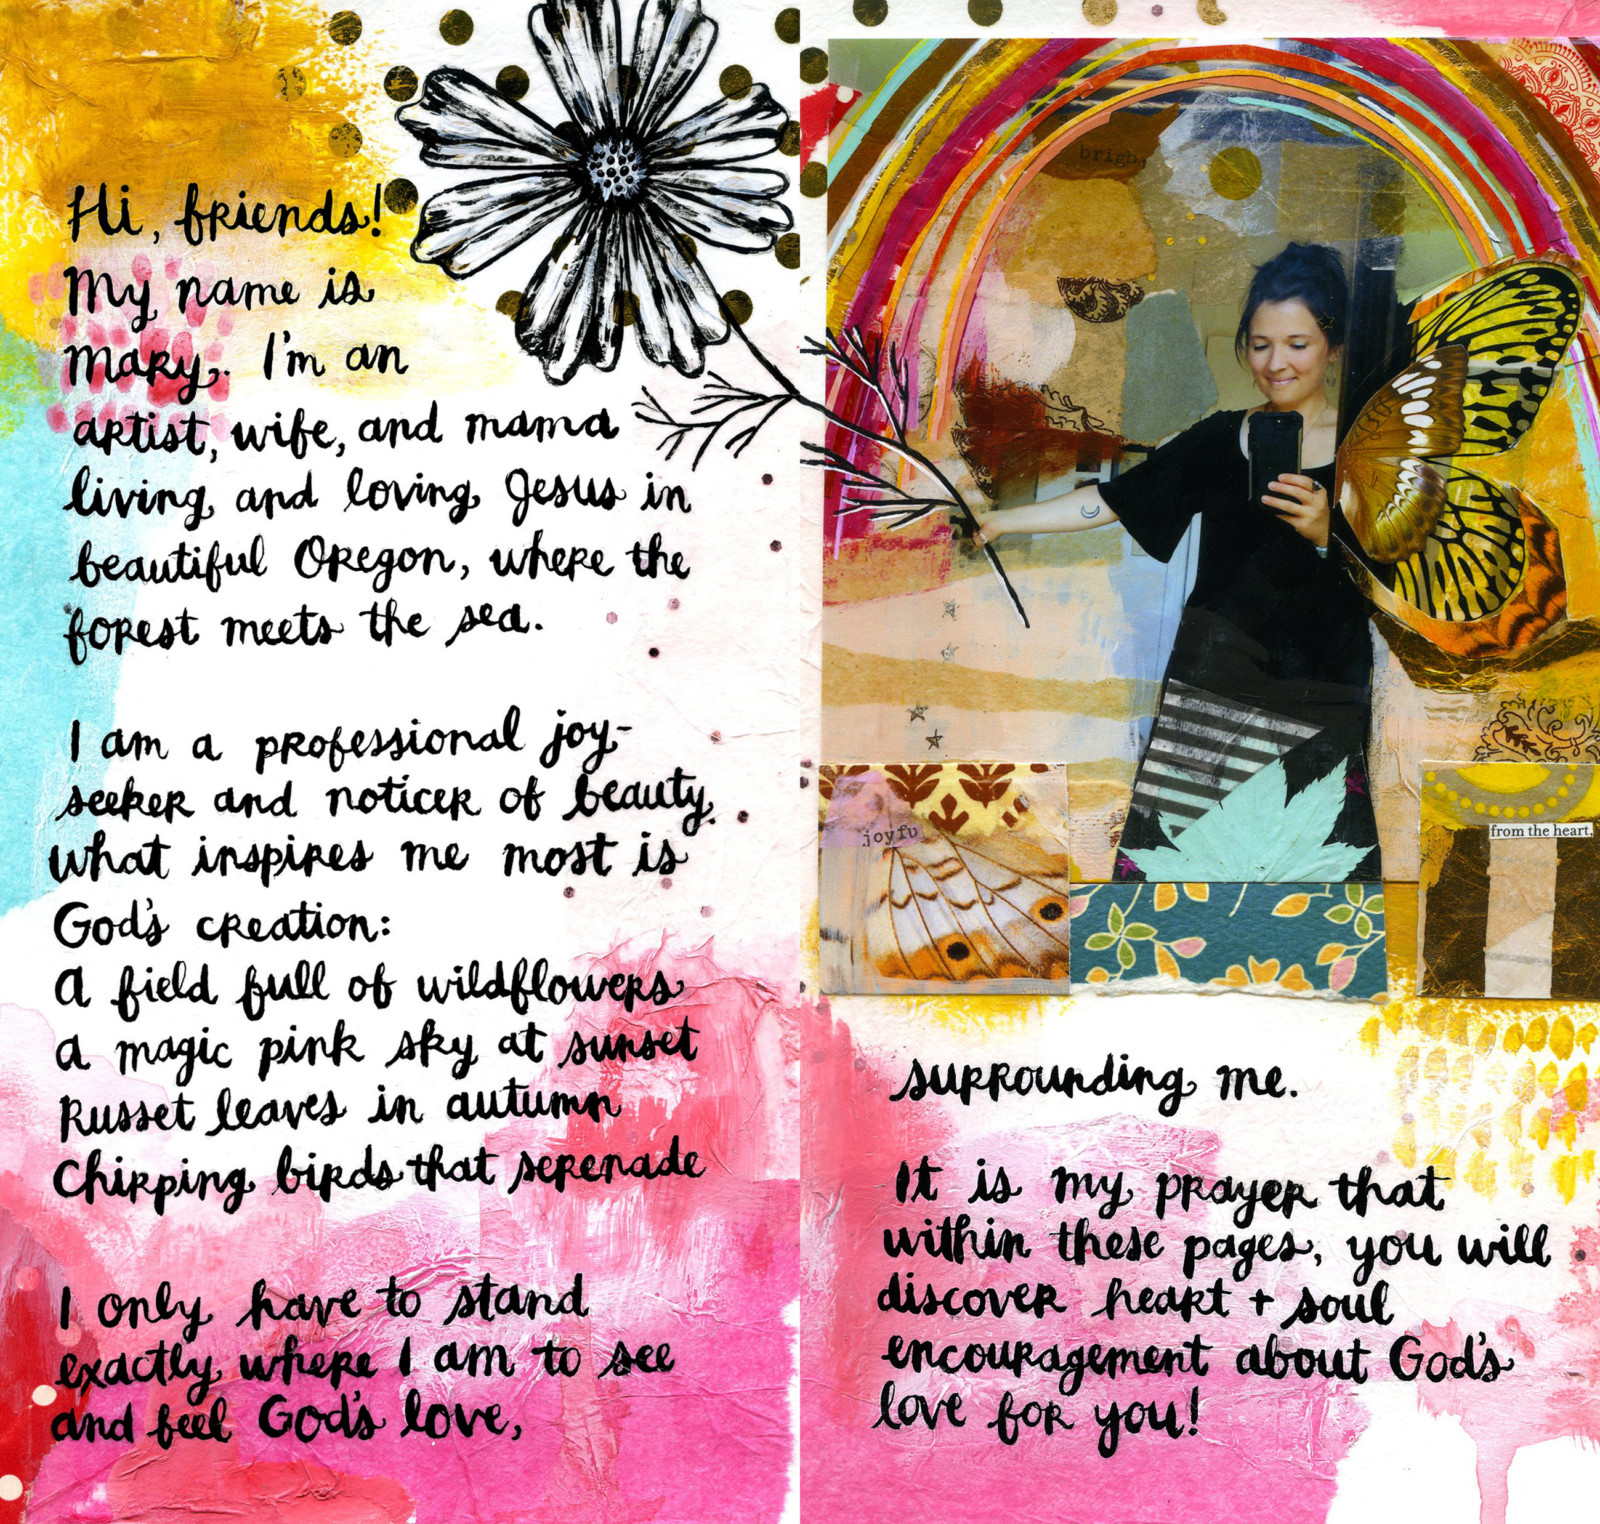 Hi, friends!
My name is
Mary. I'm an
artist, wife, and mama
living and loving Jesus in
beautiful Oregon, where the
forest meets the sea.
I am a professional joy-
seeker and noticer of beauty.
What inspires me most is
God's creation:
A field full of wildflowers
A magic pink sky at sunset
Russet leaves in autumn
Chirping birds that serenade
I only have to stand
exactly where I am to see
and feel God's love,
brigh
joyfu
from the heart,
surrounding me.
It is my prayer that
within these pages, you will
discover heart + soul
encouragement about God's
love for you!